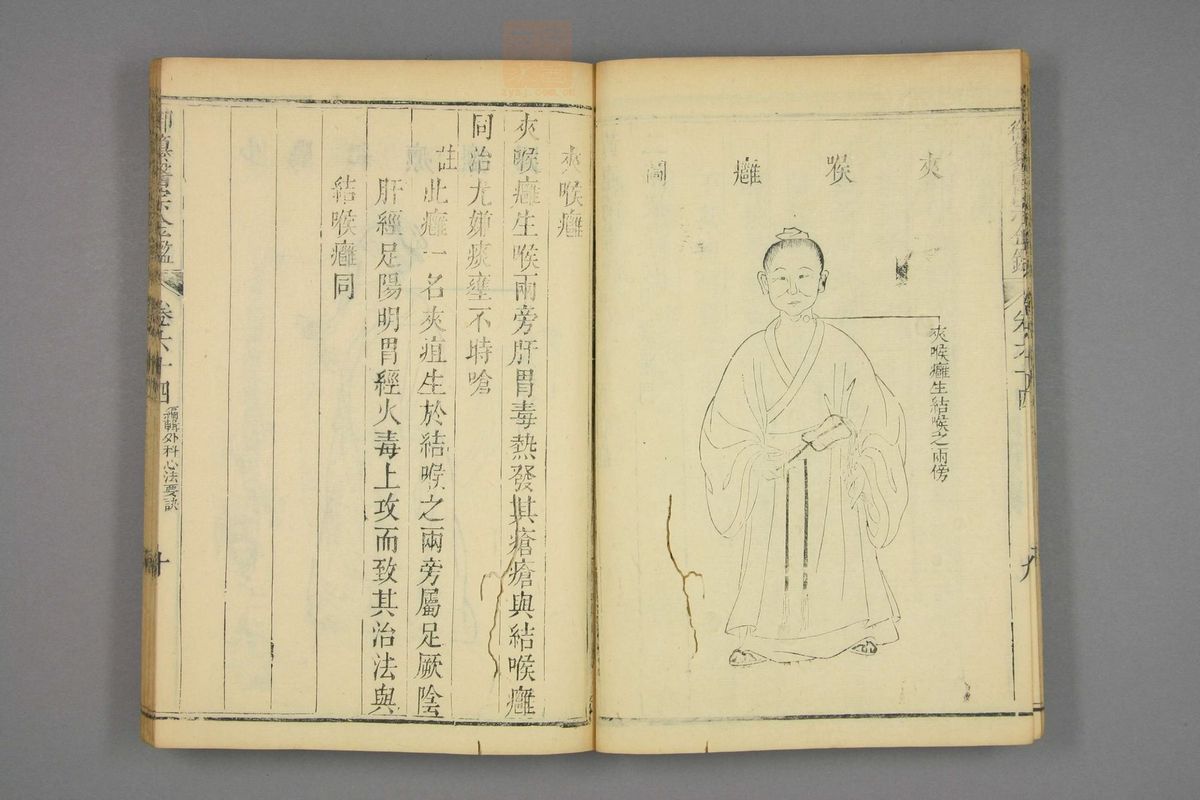 御纂醫宗金鑑 卷六十四 九
夾喉癰圖
夾喉癰生結喉之兩傍
夾喉癰
夾喉癰生喉兩旁肝胃毒熱發其瘡瘡與結喉癰
同治尤嫌痰壅不時嗆
註此癰一名夾疽生於結喉之兩旁屬足厥陰
肝經足陽明胃經火毒上攻而致其治法與
結喉癰同
御纂醫宗金鑑 卷六十四 編輯外科心法要訣 十